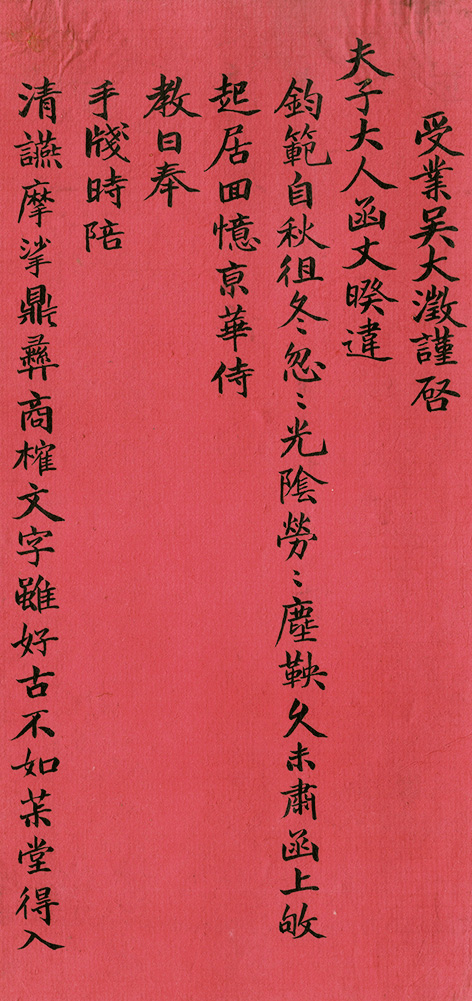 受業吳大澂謹啓
夫子大人函丈暌違
鈞範自秋徂冬忽〻光陰勞〻塵鞅久未肅函上敂
起居回憶京華侍
教日奉
手牋時陪
清讌摩挲鼎彝商榷文字雖好古不如芣堂得入